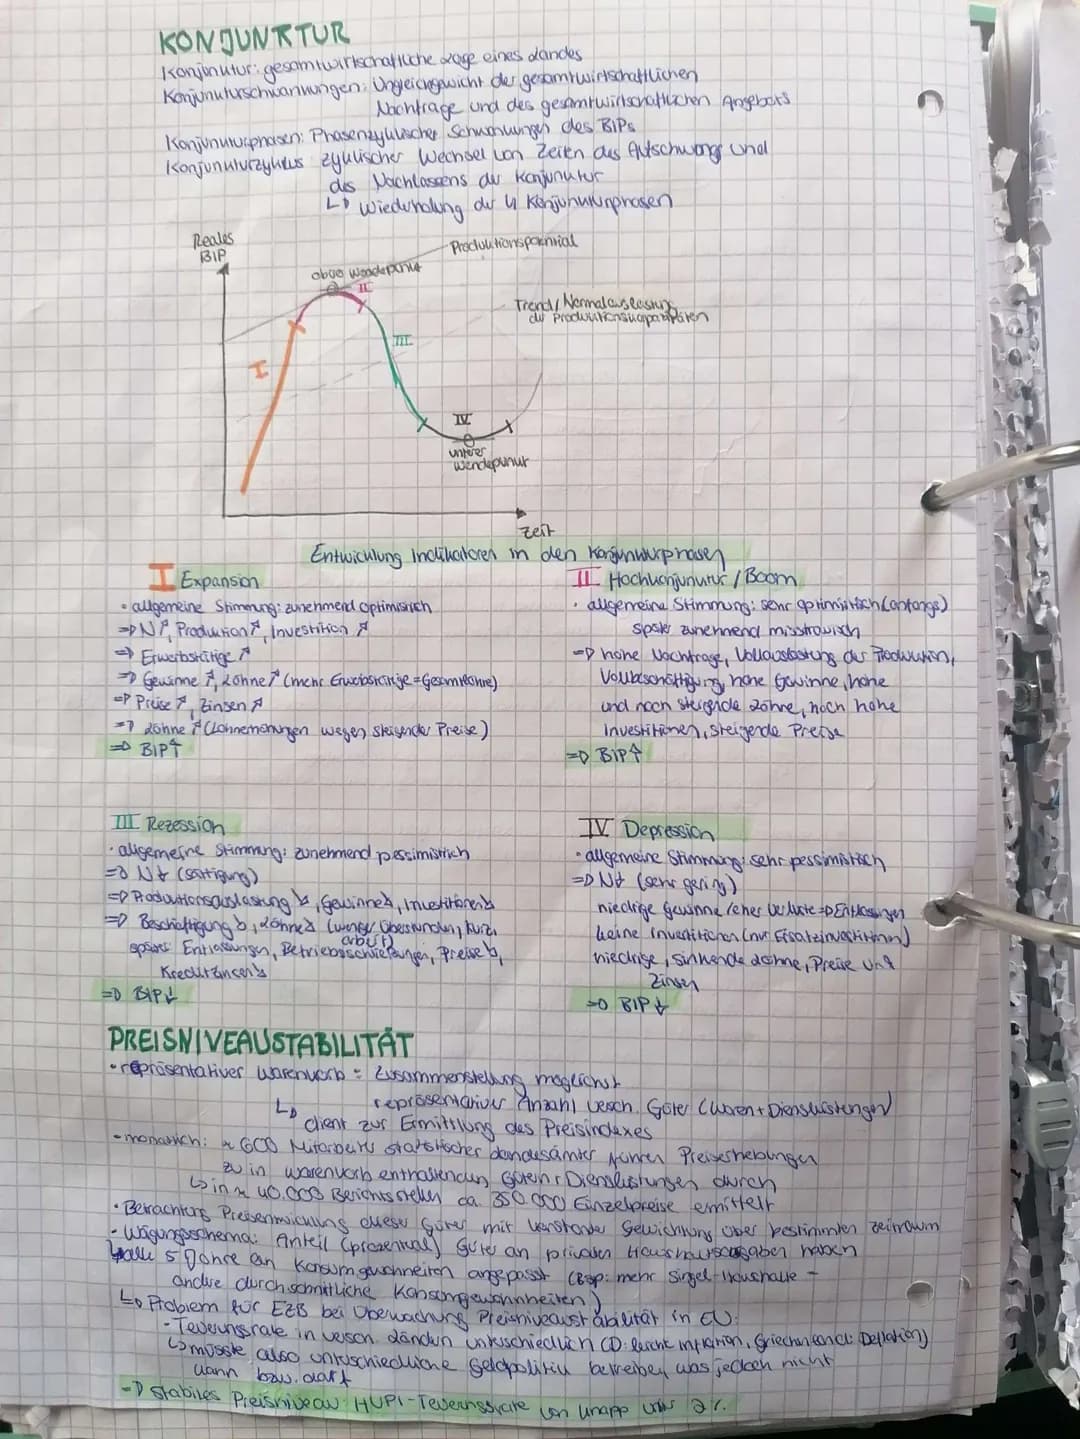 KONJUNKTUR
Konjunktur: gesamtwirtschaftliche Lage eines Landes
Konjunkturschwankungen: Ungleichgewicht der gesamtwirtschaftlichen
Nachfrage und des gesamtwirtschaftlichen Angebots
Konjunkturphasen: Phasenzyklischer Schwankungen des BIPs
Konjunkturzyklus zyklischer Wechsel von Zeiten des Aufschwungs und
des Nachlassens der Konjunktur
↳ Wiederholung der 4 Konjunkturphasen
Reales
BIP
Produktionspotential
oberer Wendepunkt
II
Trend/Normalauslastung
der Produktionskapazitäten
I
III
IV
unterer
Wendepunkt
Zeit
Entwicklung Indikatoren in den Konjunkturphasen
I Expansion
• allgemeine Stimmung: zunehmend optimistisch
=> N↗, Produktion↗, Investition↗
=> Erwerbstätige↗
=> Gewinne↗, Löhne↗ (mehr Erwerbstätige=Gesamtlöhne)
=> Preise↗, Zinsen↗
=> Löhne↗ (Lohnerhöhungen wegen steigender Preise)
=> BIP↑
II Hochkonjunktur / Boom
• allgemeine Stimmung: sehr optimistisch (anfangs)
später zunehmend misstrauisch
=> hohe Nachfrage, Vollauslastung der Produktion,
Vollbeschäftigung, hohe Gewinne, hohe
und noch steigende Löhne, noch hohe
Investitionen, steigende Preise
=> BIP↑
III Rezession
• allgemeine Stimmung: zunehmend pessimistisch
=> N↓ (Sättigung)
=> Produktionsauslastung↘, Gewinne↘, Investitionen↘
=> Beschäftigung↘, Löhne↘ (weniger Überstunden, Kurz-
arbeit)
später Entlassungen, Betriebsschließungen, Preise↘,
Kreditzinsen↘
=> BIP↓
IV Depression
• allgemeine Stimmung: sehr pessimistisch
=> N↓ (sehr gering)
niedrige Gewinne/eher Verluste => Entlassungen
keine Investitionen (nur Ersatzinvestitionen)
niedrige, sinkende Löhne, Preise und
Zinsen
=> BIP↓
PREISNIVEAUSTABILITÄT
• repräsentativer Warenkorb = Zusammenstellung möglichst
repräsentativer Anzahl versch. Güter (Waren+Dienstleistungen)
↳ dient zur Ermittlung des Preisindexes
- monatlich: ≈ 600 Mitarbeiter statistischer Landesämter führen Preiserhebungen
zu in Warenkorb enthaltenden Gütern + Dienstleistungen durch
↳ in ≈ 40.000 Berichtsstellen ca. 350.000 Einzelpreise ermittelt
• Betrachtung Preisentwicklung dieser Güter mit konstanter Gewichtung über bestimmten Zeitraum
• Wägungsschema: Anteil (prozentual) Güter an privaten Haushaltsausgaben haben
↳ alle 5 Jahre an Konsumgewohnheiten angepasst (Bsp: mehr Singel-Haushalte -
andere durchschnittliche Konsumgewohnheiten)
↳ Problem für EZB bei Überwachung Preisniveaustabilität in EU:
- Teuerungsrate in versch. Ländern unterschiedlich (D: leicht Inflation, Griechenland: Deflation)
↳ müsste also unterschiedliche Geldpolitik betreiben, was jedoch nicht
kann bzw. darf
=> stabiles Preisniveau: HVPI-Teuerungsrate von knapp unter 2%